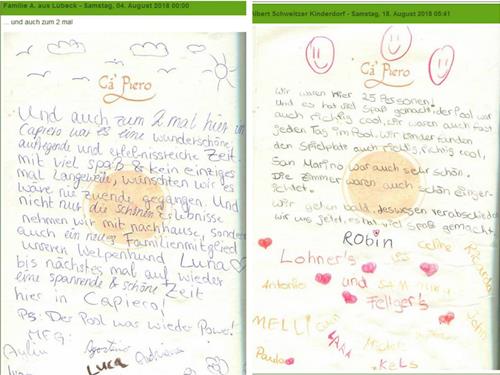 Familie A. aus Lübeck - Samstag, 04. August 2018 00:00
... und auch zum 2 mal
Ca' Piero
Und auch zum 2 mal hier in
Capiero war es eine wunderschöne,
aufregende und erlebnissreiche Zeit.
mit viel spaß & kein einziges
mal Langeweile, wünschten wir es
wäre nie zuende gegangen. Und
nicht nur die schönen Erlebnisse
nehmen wir mit nachhause, sondern
auch ein neues Familienmitglied
unseren Welpenhund Luna
bis nächstes mal auf wieder
eine spannende & schöne Zeit
hier in Capiero!
PS: Der Pool war wieder Power!
MFG:
Luca
Albert Schweitzer Kinderdorf - Samstag, 18. August 2018 05:41
Ca' Piero
Wir waren hier 25 Personen!
und es hat viel Spaß gemacht. der Pool war
auch richtig cool, wir waren auch fast
jeden Tag im Pool. Wir Kinder fanden
den Spielplatz auch richtig, richtig cool,
San Marino war auch sehr schön.
Die Zimmer waren auch schön einger-
ichtet.
Wir gehen bald, deswegen verabschieden
wir uns jetzt, es hat viel Spaß gemacht
Robin
Celine
Lohner's
Antonio und
Fellger's
John
MELLI
SARA
Paula
Kels